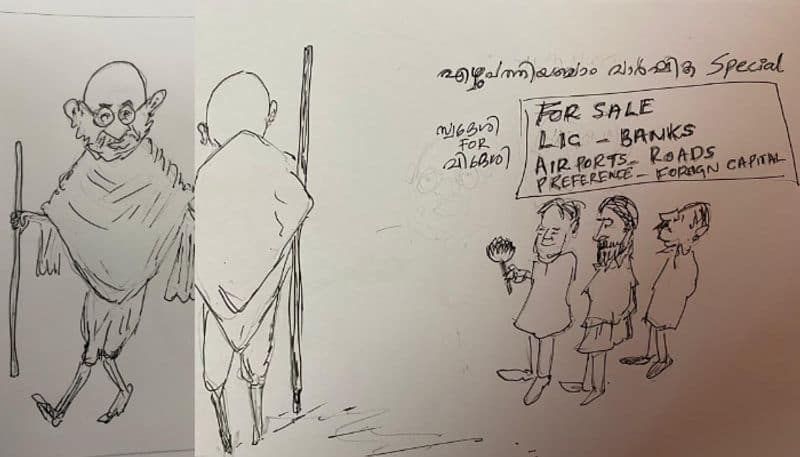 എഴുപത്തിയഞ്ചാം വാർഷിക Special
സ്വദേശി
FOR
വിദേശി
FOR SALE
LIC - BANKS
AIRPORTS - ROADS
PREFERENCE - FOREIGN CAPITAL